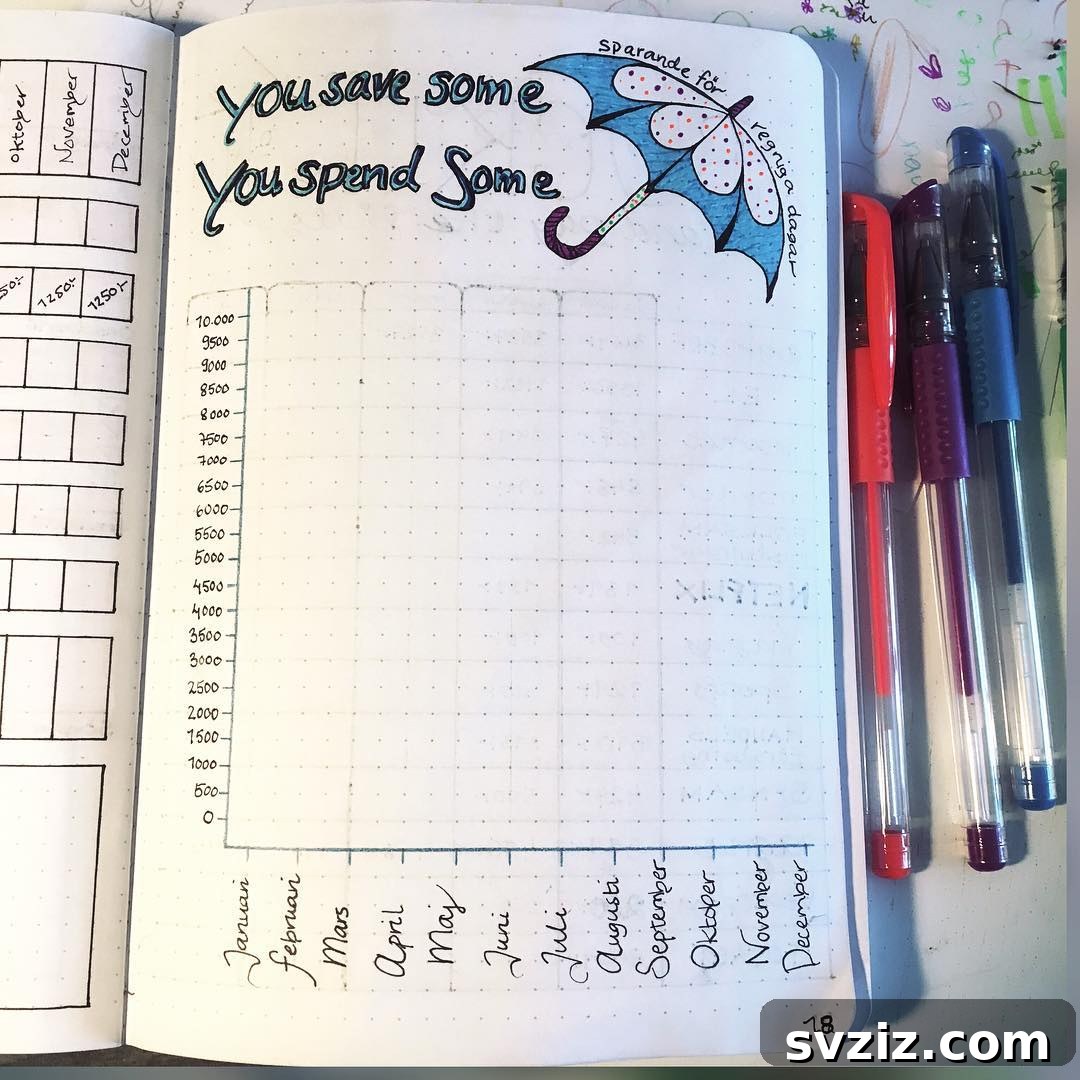 oktober
November
December
50:-
1250:-
1250:-
you save some
You spend Some
sparande för
regniga dagar
10.000
9500
9000
8500
8000
7500
7000
6500
6000
5500
5000
4500
4000
3500
3000
2500
2000
1500
1000
500
0
Januari
Februari
Mars
April
Maj
Juni
Juli
Augusti
September
Oktober
November
December
NETFLIX
18
svziz.com